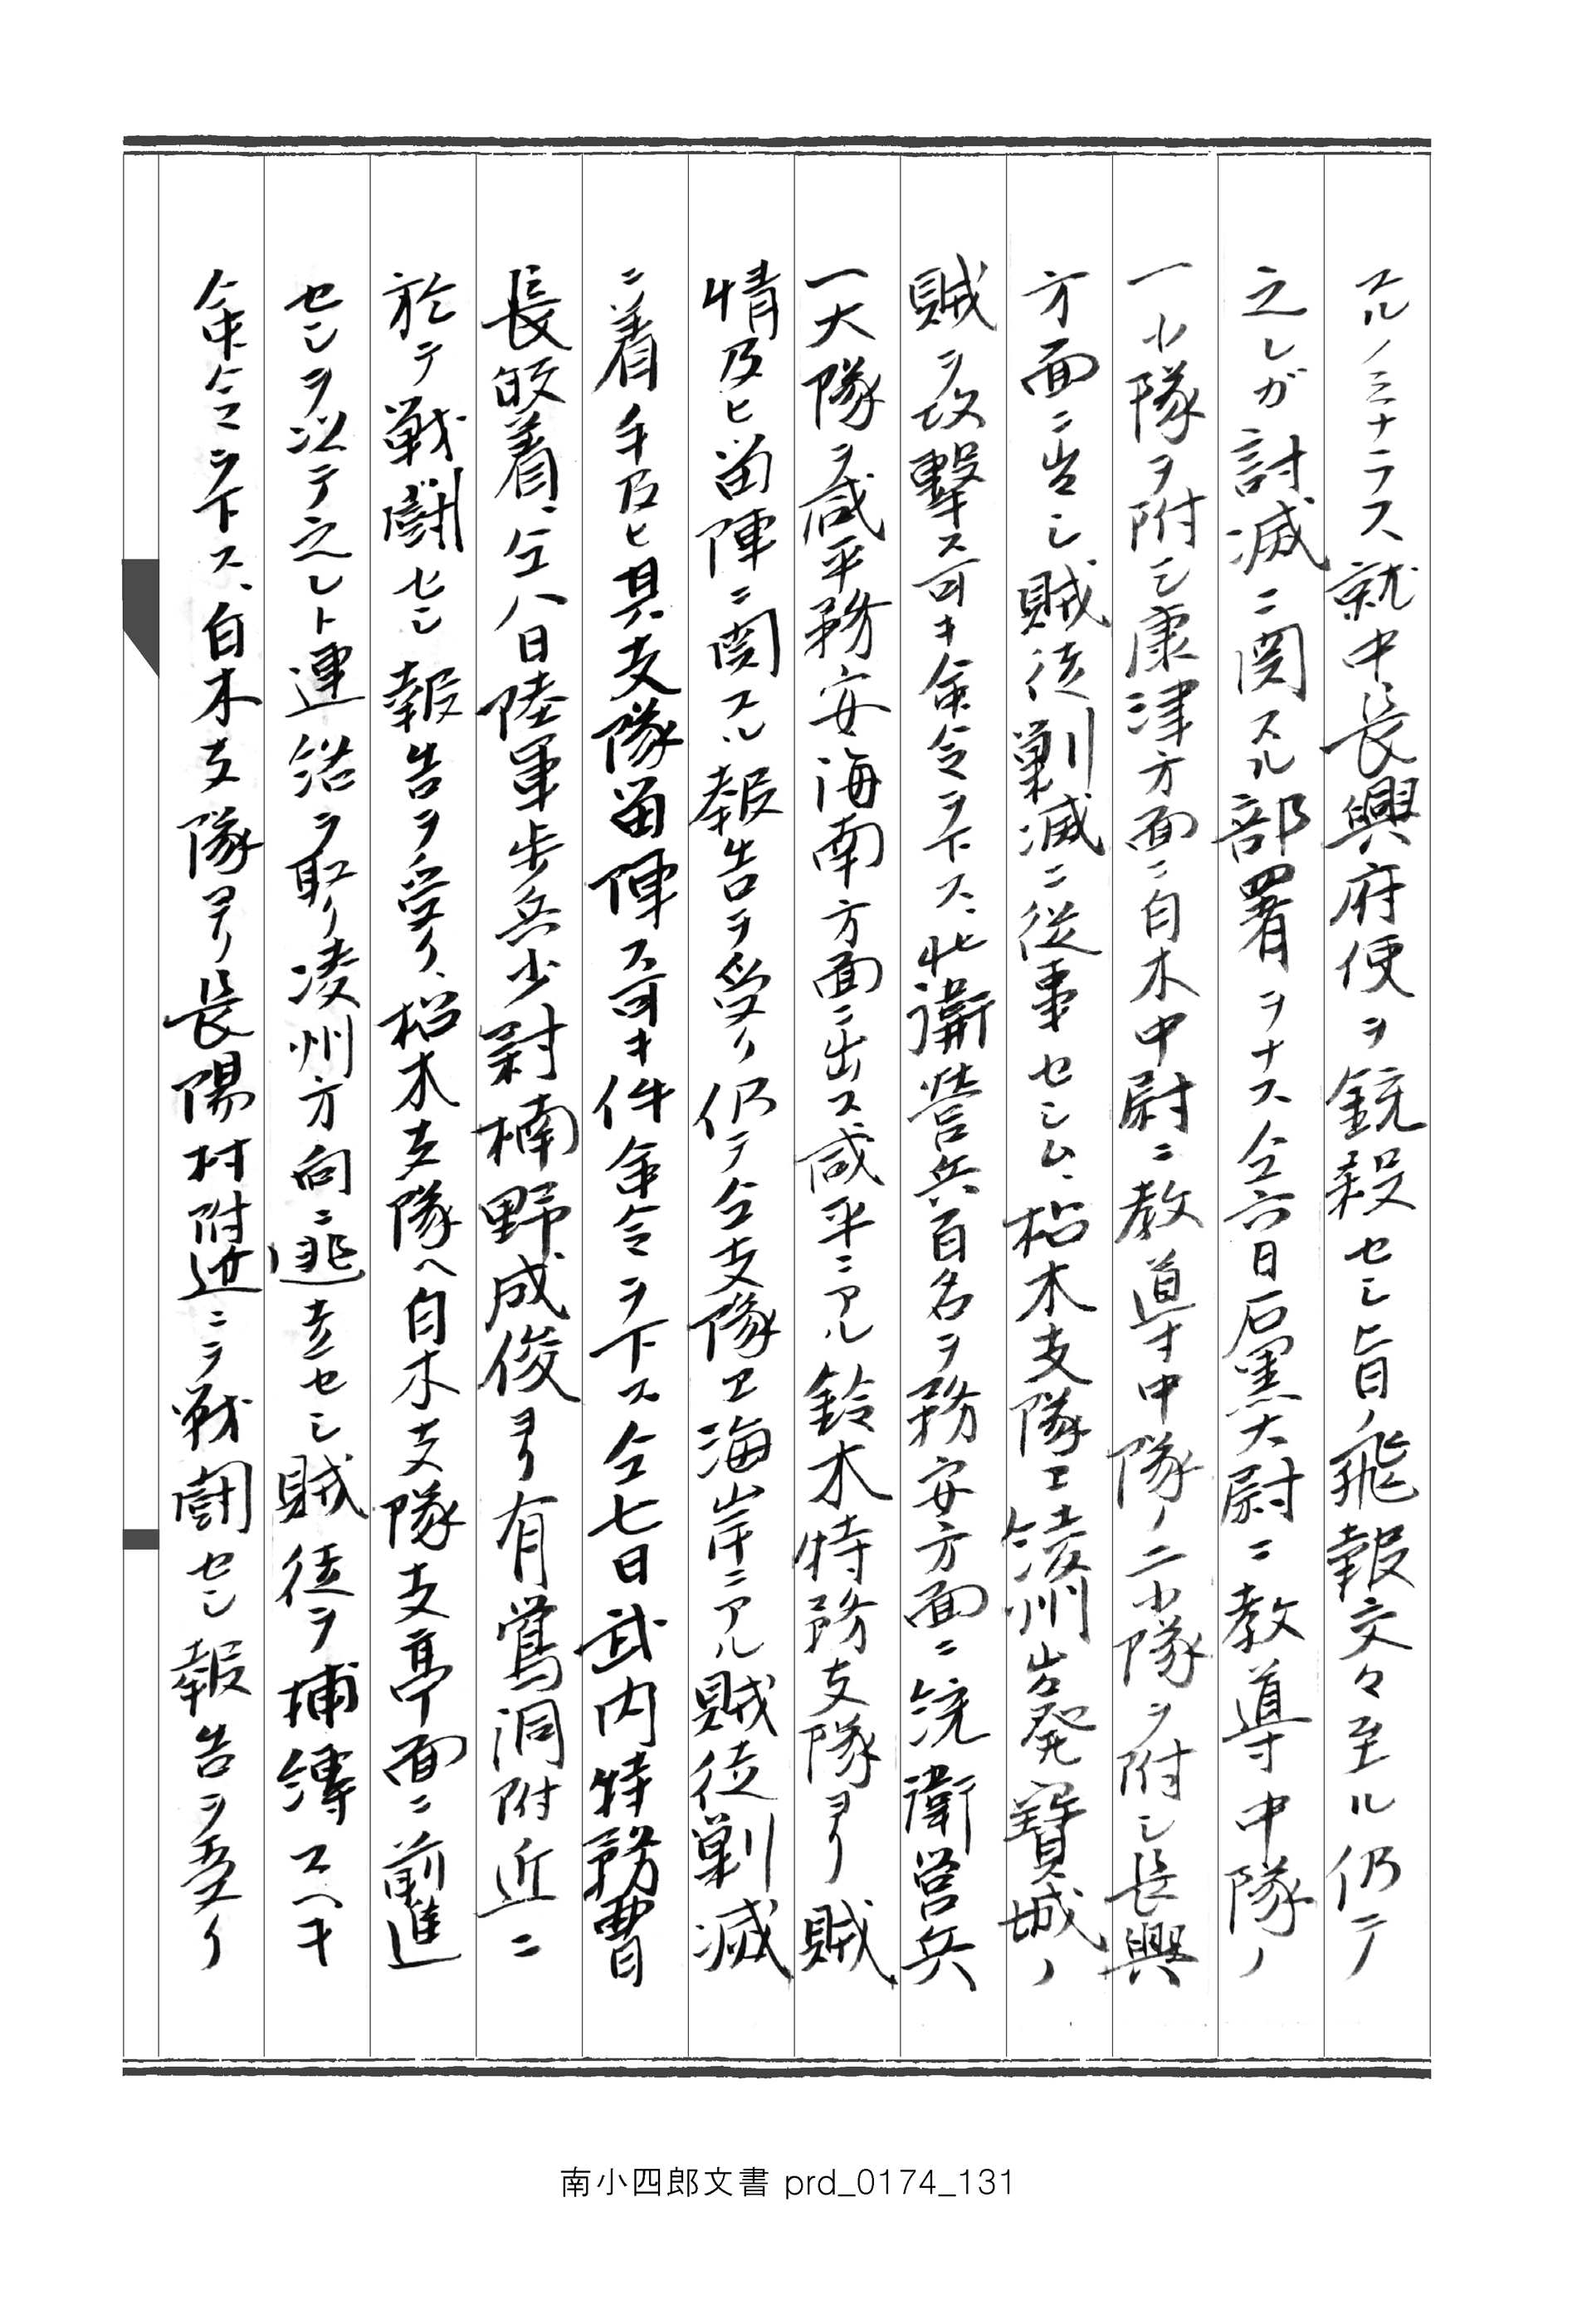 スルノミナラス就中長興府使ヲ銃殺セシ旨ノ飛報交々至ル仍テ
之レガ討滅ニ関スル部署ヲナス仝六日石黒大尉ニ教導中隊ノ
一小隊ヲ附シ康津方面ニ白木中尉ニ教導中隊ノ二小隊ヲ附シ長興
方面ニ出シ賊徒剿滅ニ従事セシム、松木支隊エ綾州出発寶城ノ
賊ヲ攻撃ス可キ命令ヲ下ス、壮衛営兵百名ヲ務安方面ニ統衛営兵
一大隊ヲ咸平務安海南方面ニ出ス咸平ニアル鈴木特務支隊ヨリ賊
情及ヒ留陣ニ関スル報告ヲ受ク仍テ仝支隊エ海岸ニアル賊徒剿滅
ニ着手及ヒ其支隊留陣ス可キ件命令ヲ下ス仝七日武内特務曹
長皈着、仝八日陸軍歩兵少尉楠野成俊ヨリ有鴬洞附近ニ
於テ戦闘セシ報告ヲ受ク、松木支隊ヘ白木支隊支亭面ニ前進
センヲ以テ之レト連絡ヲ取リ凌州方向ニ逃走セシ賊徒ヲ捕縛スヘキ
命令ヲ下ス、白木支隊ヨリ長陽村附近ニテ戦闘セシ報告ヲ受ク
南小四郎文書 prd_0174_131